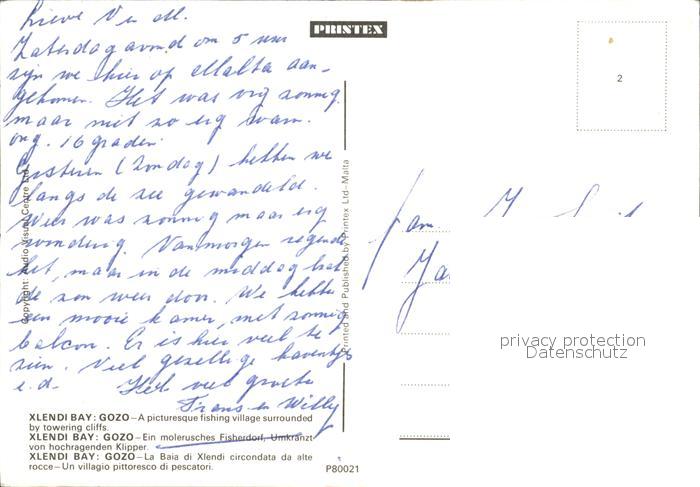 PRINTEX
2
Lieve V en M.
Zaterdagavond om 5 uur
zijn we hier op Malta aan-
gekomen. Het was vrij zonnig
maar niet zo erg warm.
ong. 16 graden.
Gisteren (Zondag) hebben we
langs de zee gewandeld.
Weer was zonnig maar erg
winderig. Vanmorgen regende
het, maar in de middag brak
de zon weer door. We hebben
een mooie kamer, met zonnig
balcon. Er is hier veel te
zien. Veel gezellige haventjes
e.d. Heel veel groeten
Frans en Willy
Fam
Copyright: Audio Visual Centre Ltd.
Printed and Published by Printex Ltd–Malta
privacy protection
Datenschutz
XLENDI BAY: GOZO–A picturesque fishing village surrounded
by towering cliffs.
XLENDI BAY: GOZO–Ein molerusches Fisherdorf, Umkranzt
von hochragenden Klipper.
XLENDI BAY: GOZO–La Baia di Xlendi circondata da alte
rocce–Un villagio pittoresco di pescatori.
P80021